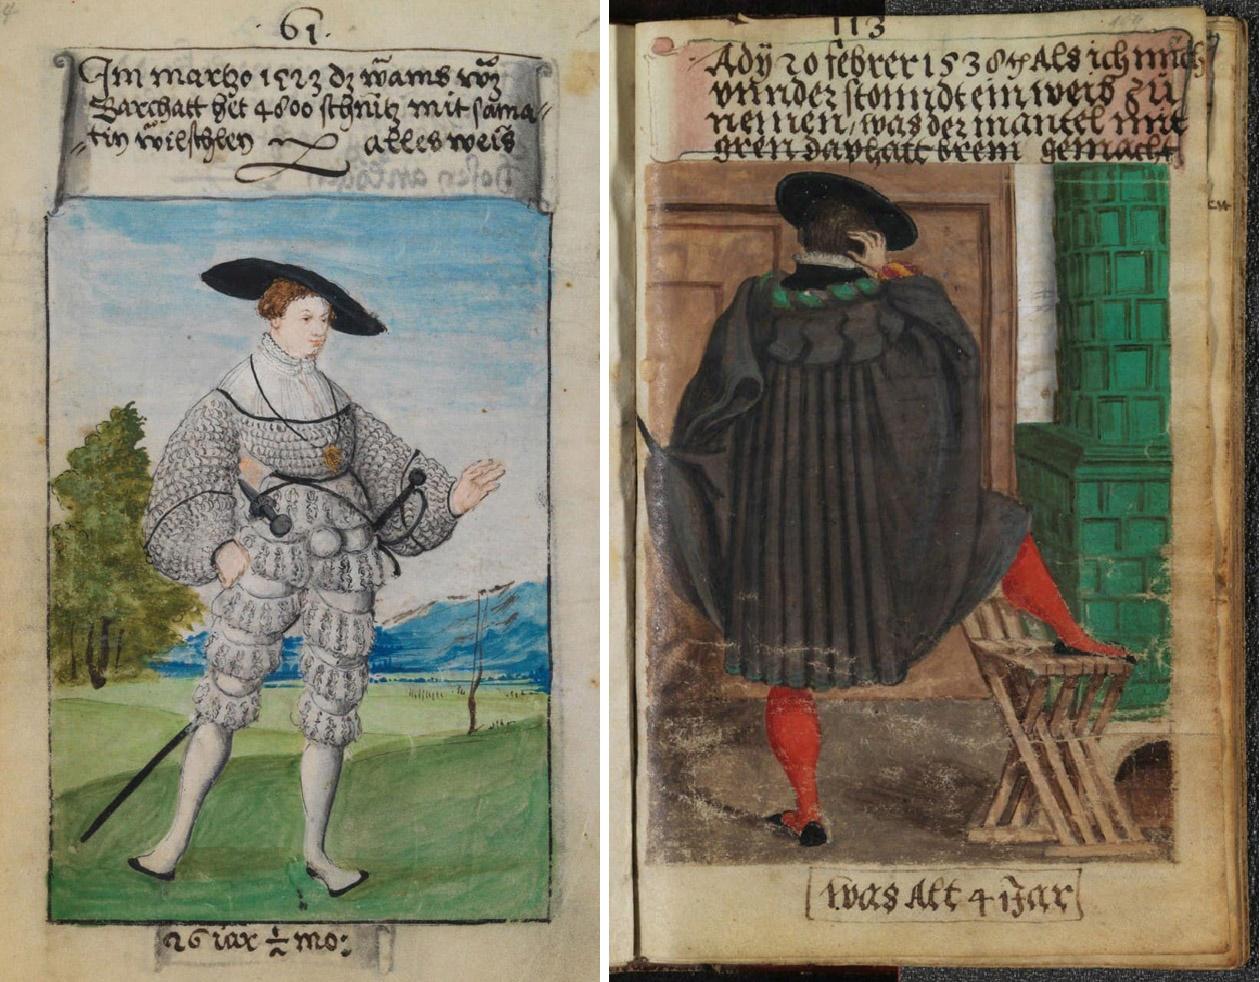 61.
Im martzo 1523 dz wams wz
Barchatt het 4800 schnitz mit sama-
tin wilschlen alles weis
26 iar ½ mo:
113
Adÿ 20 febrer 1538 Als ich mich
vnnder stonndt ein weib zu
nemen, was der mantel mit
gren daphatt brem gemacht
was Alt 41 Jar